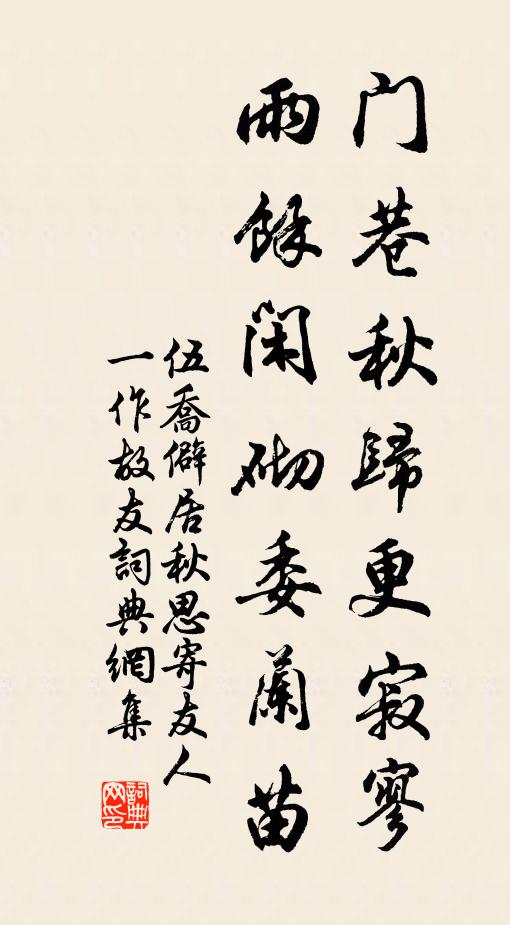 门巷秋歸更寂寥
雨餘閑砌委蘭苗
伍喬僻居秋思寄友人
一作故友詞典網集
詞典网印